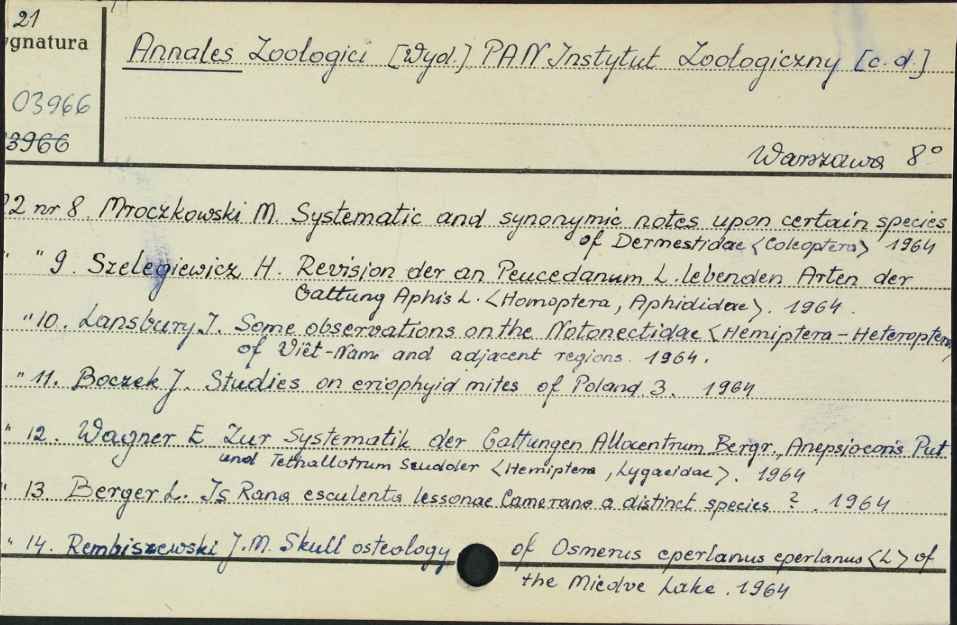 21
ygnatura
Annales Zoologici [Wyd.] PAN Instytut Zoologiczny [c.d.]
03966
3966
Warszawa 8°
22 nr 8. Mroczkowski M. Systematic and synonymic notes upon certain species
of Dermestidae <Coleoptera> 1964
" " 9. Szelegiewicz H. Revision der an Peucedanum L. lebenden Arten der
Gattung Aphis L. <Homoptera, Aphididae>. 1964.
" 10. Lansbury J. Some observations on the Notonectidae <Hemiptera-Heteroptera>
of Viêt-Nam and adjacent regions. 1964.
" 11. Boczek J. Studies on eriophyid mites of Poland 3. 1964
" 12. Wagner E Zur Systematik der Gattungen Allocentrum Bergr., Anepsiocoris Put
und Tethallotrum Scudder <Hemiptera, Lygaeidae>. 1964
" 13 Berger L. Is Rana esculenta lessonae Camerano a distinct species ? . 1964
" 14. Rembiszewski J.M. Skull osteology of Osmerus eperlanus eperlanus <L> of
the Miedve Lake. 1964